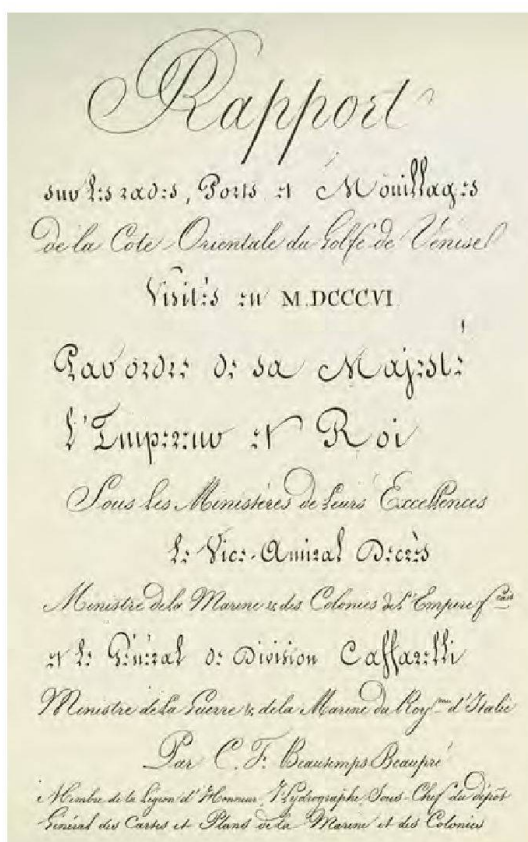 Rapport
sur les rades, Ports et Mouillages
de la Cote Orientale du Golfe de Venise
Visités en M.DCCCVI
Par ordre de sa Majesté
l'Empereur et Roi
Sous les Ministères de leurs Excellences
le Vice-Amiral Decrès
Ministre de la Marine & des Colonies de l'Empire f.çais
et le Général de Division Caffarelli
Ministre de la Guerre & de la Marine du Roy.me d'Italie
Par C. F. Beautemps Beaupré
Membre de la Légion d'Honneur, Hydrographe Sous-Chef du dépot
Général des Cartes et Plans de la Marine et des Colonies